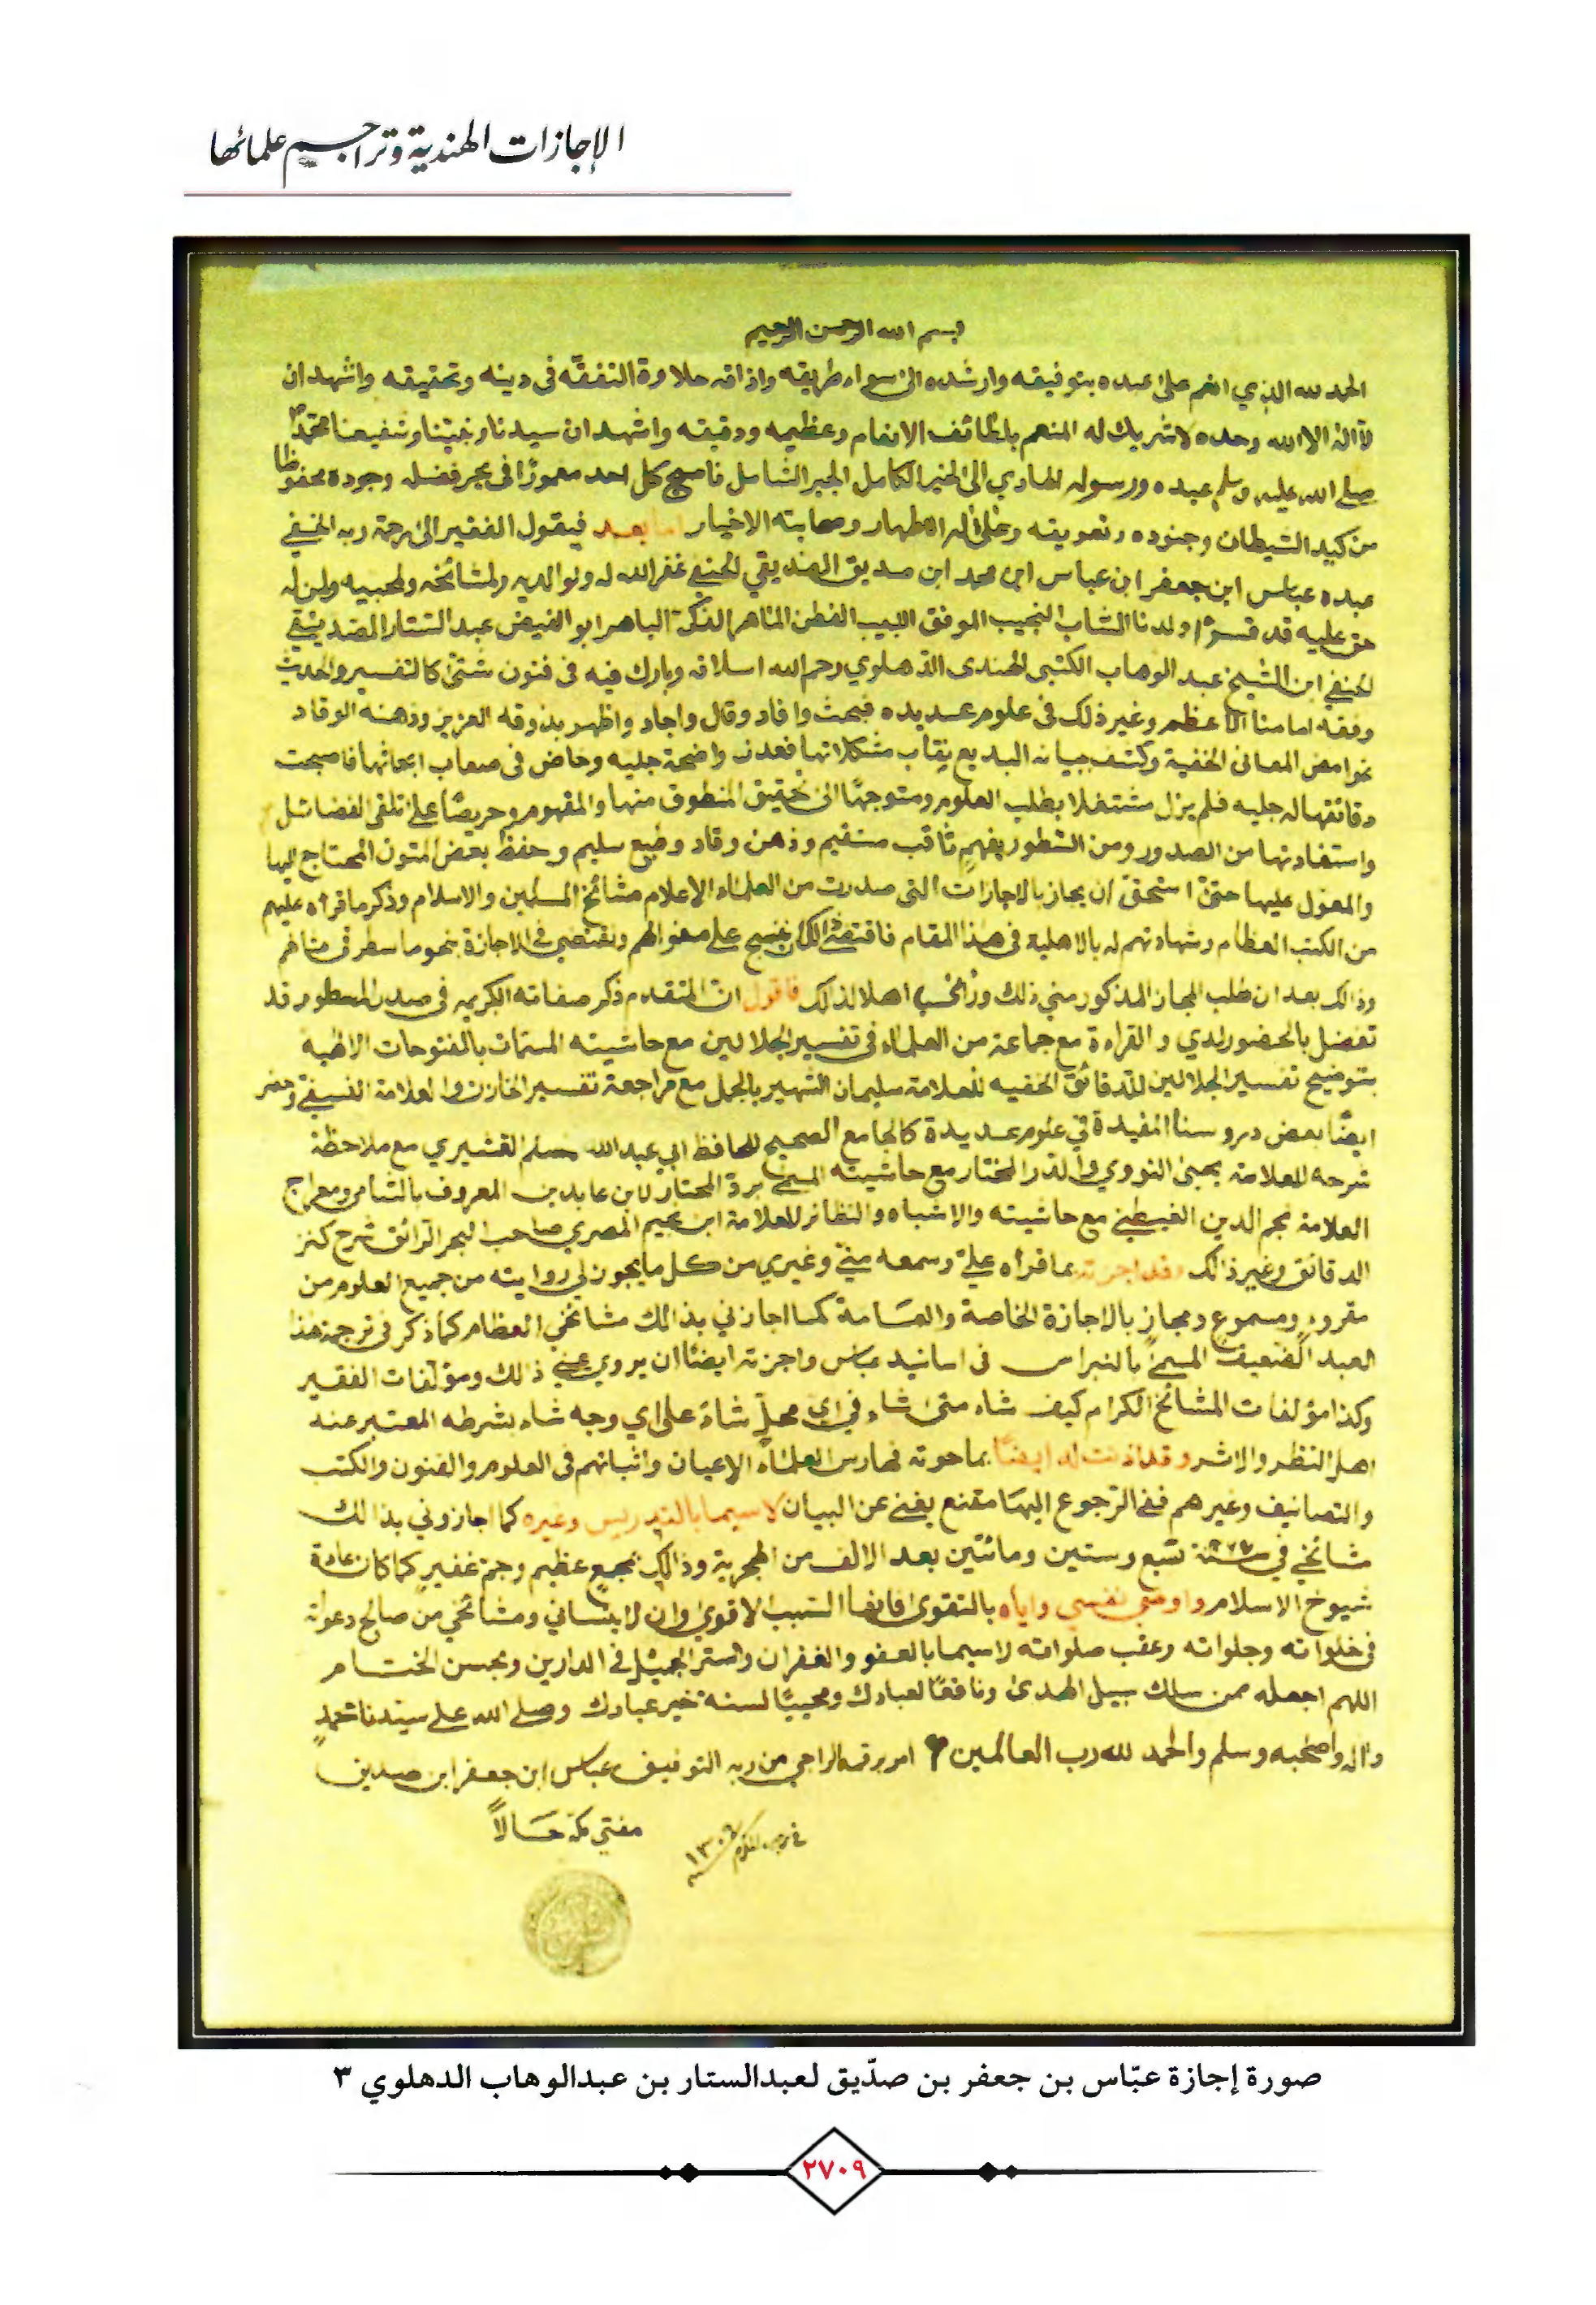 الإجازات الهندية وتراجيم علمائها
بسم الله الرحمن الرحيم
الحمد لله الذي انعم على عبده بتوفيقه وارشده الى سواء طريقه واذاقه حلاوة التفقه فى دينه وتحقيقه واشهد ان
لا اله الا الله وحده لا شريك له المنعم بلطائف الانعام وعظيمه ودقيقه واشهد ان سيدنا ونبينا وشفيعنا محمدا
صلى الله عليه وسلم عبده ورسوله الهادي الى الخير الكامل الجبر الشامل فاصبح كل احد مغمورا فى بحر فضله وجوده محفوظا
من كيد الشيطان وجنوده وتعويقه وعلى اله الاطهار وصحابته الاخيار اما بعد فيقول الفقير الى رحمة ربه الخفي
عبده عباس ابن جعفر ابن عباس ابن محمد ابن صديق الصديقي الحنفي غفر الله له ولوالديه ولمشائخه ولمحبيه ولمن له
حق عليه قد قرأ ولدنا الشاب النجيب الموفق اللبيب الفطن الماهر الذكي الباهر ابو الفيض عبد الستار الصديقي
الحنفي ابن الشيخ عبد الوهاب الكتبى الهندى الدهلوي رحم الله اسلافه وبارك فيه فى فنون شتى كالتفسير والحديث
وفقه امامنا الأعظم وغير ذلك فى علوم عديده فبحث وافاد وقال واجاد واظهر بذوقه العزيز وذهنه الوقاد
غوامض المعانى الخفية وكشف ببيانه البديع نقاب مشكلاتها فعدت واضحة جليه وخاض فى صعاب ابحاثها فاصبحت
دقائقها له جليه فلم يزل مشتغلا بطلب العلوم ومتوجها الى تحقيق المنطوق منها والمفهوم وحريصا على تلقى الفضائل
واستفادتها من الصدور ومن السطور بفهم ثاقب مستقيم وذهن وقاد وطبع سليم وحفظ بعض المتون المحتاج اليها
والمعول عليها حتى استحق ان يجاز بالاجازات التى صدرت من العلماء الاعلام مشائخ المسلمين والاسلام وذكر ما قرأه عليهم
من الكتب العظام وشهادتهم له بالاهلية فى هذا المقام فاقتضى ذلك ان ننسج على منوالهم ونقتضي فى الاجازة بنحو ما سطر فى
وذالك بعد ان طلب المجاز المذكور مني ذلك اهلا لذالك فاقول ان المتقدم ذكر صفاته الكريمه فى صدر المسطور قد
تفضل بالحضور لدي والقراءة مع جماعة من العلماء فى تفسير الجلالين مع حاشيته المسمات بالفتوحات الالهية
بتوضيح تفسير الجلالين للدقائق الخفيه للعلامة سليمان الشهير بالجمل مع مراجعة تفسير الخازن والعلامة النسفي وحضر
ايضا بعض دروسنا المفيدة في علوم عديدة كالجامع الصحيح للحافظ ابي عبدالله مسلم القشيري مع ملاحظة
شرحه للعلامة يحيى النووي والدر المختار مع حاشيته المسمى برد المحتار لابن عابدين المعروف بالشامي ومعراج
العلامة نجم الدين الغيطي مع حاشيته والاشباه والنظائر للعلامة ابن نجيم المصري صاحب البحر الرائق شرح كنز
الدقائق وغير ذالك وقد اجزته بما قرأه علي وسمعه مني وغيري من كل ما يجوز لي روايته من جميع العلوم من
مقروء ومسموع ومجاز بالاجازة الخاصة والعامة كما اجازني بذالك مشائخي العظام كما ذكر فى ترجمة هذا
العبد الضعيف المسمى بالنبراس فى اسانيد عباس واجزته ايضا ان يروي عني ذالك ومؤلفات الفقير
وكذا مؤلفات المشائخ الكرام كيف شاء متى شاء في اي محل شاء على اي وجه شاء بشرطه المعتبر عند
اهل النظر والاثر وقد اذنت له ايضا بما حوته فهارس العلماء الاعيان واثباتهم فى العلوم والفنون والكتب
والتصانيف وغيرهم ففي الرجوع اليها مقنع يغني عن البيان لا سيما بالتدريس وغيره كما اجازوني بذالك
مشائخي في سنة وستين ومائتين بعد الالف من الهجرية وذالك بمجمع عظيم وجم غفير كما كان عادة
شيوخ الاسلام واوصي نفسي واياه بالتقوى فانها السبب الاقوى وان لا ينساني ومشائخي من صالح دعواته
فى خلواته وجلواته وعقب صلواته لا سيما بالعفو والغفران والستر الجميل في الدارين وبحسن الختام
اللهم اجعله ممن سلك سبيل الهدى ونافعا لعبادك ومحييا لسنة خير عبادك وصلى الله على سيدنا محمد
واله واصحبه وسلم والحمد لله رب العالمين امر برقمه الراجي من ربه التوفيق عباس ابن جعفر ابن صديق
مفتي مكة حالا
صورة إجازة عبّاس بن جعفر بن صدّيق لعبدالستار بن عبدالوهاب الدهلوي ٣
٢٧٠٩